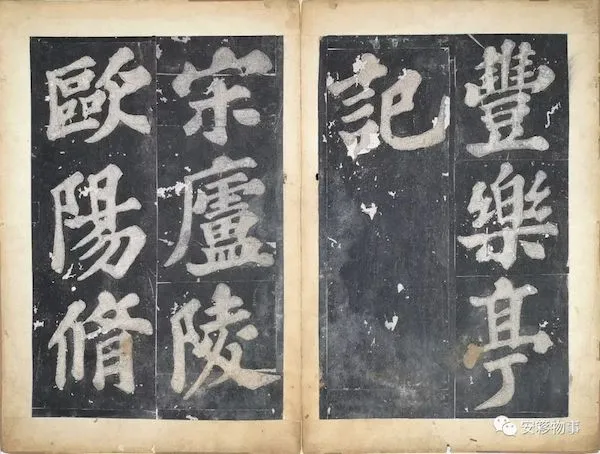 豐樂亭
記
宋廬陵
歐陽脩
安移物事